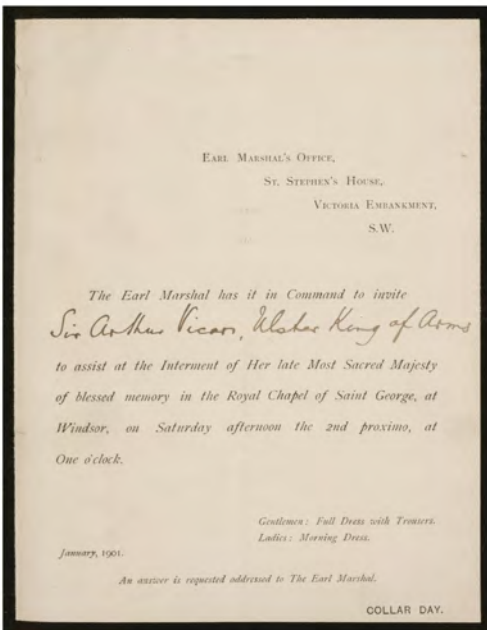 EARL MARSHAL'S OFFICE,
ST. STEPHEN'S HOUSE,
VICTORIA EMBANKMENT,
S.W.
The Earl Marshal has it in Command to invite
Sir Arthur Vicars, Ulster King of Arms
to assist at the Interment of Her late Most Sacred Majesty
of blessed memory in the Royal Chapel of Saint George, at
Windsor, on Saturday afternoon the 2nd proximo, at
One o'clock.
Gentlemen: Full Dress with Trousers.
Ladies: Morning Dress.
January, 1901.
An answer is requested addressed to The Earl Marshal.
COLLAR DAY.